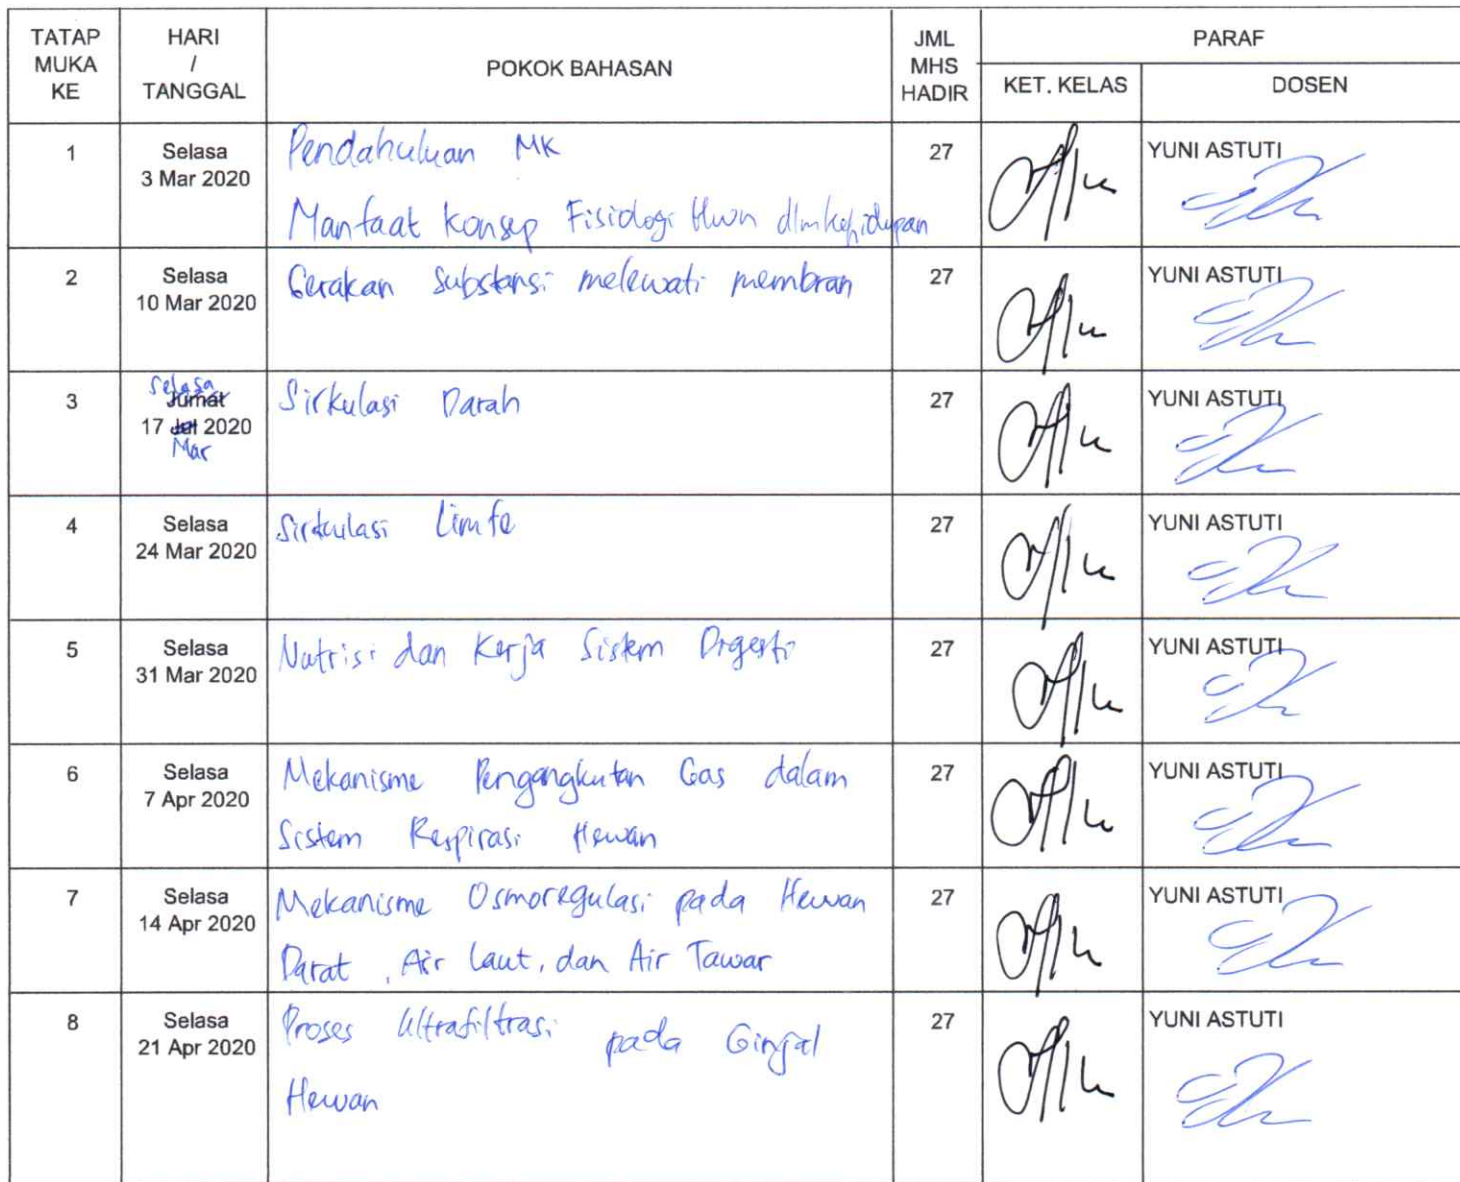 TATAP MUKA KE
HARI / TANGGAL
POKOK BAHASAN
JML MHS HADIR
PARAF
KET. KELAS
DOSEN
1
Selasa
3 Mar 2020
Pendahuluan MK
Manfaat Konsep Fisiologi Hwn dlm kehidupan
27
YUNI ASTUTI
2
Selasa
10 Mar 2020
Gerakan Substansi melewati membran
27
YUNI ASTUTI
3
Selasa
Jumat
17 Jul 2020
Mar
Sirkulasi Darah
27
YUNI ASTUTI
4
Selasa
24 Mar 2020
Sirkulasi Limfe
27
YUNI ASTUTI
5
Selasa
31 Mar 2020
Nutrisi dan Kerja Sistem Digesti
27
YUNI ASTUTI
6
Selasa
7 Apr 2020
Mekanisme Pengangkutan Gas dalam
Sistem Respirasi Hewan
27
YUNI ASTUTI
7
Selasa
14 Apr 2020
Mekanisme Osmoregulasi pada Hewan
Darat, Air Laut, dan Air Tawar
27
YUNI ASTUTI
8
Selasa
21 Apr 2020
Proses Ultrafiltrasi pada Ginjal
Hewan
27
YUNI ASTUTI